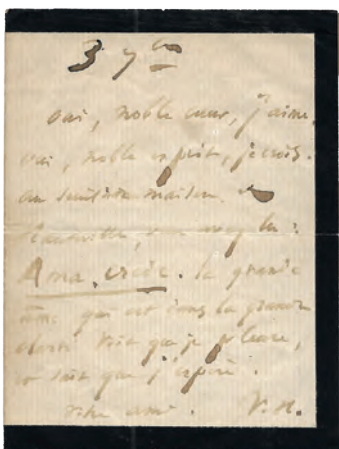 3 7bre
oui, noble cœur, j'aime,
oui, noble esprit, je crois.
au
lu :
Ama, crede. la grande
âme qui est dans la grande
voit que je pleure,
et sait que j'espère.
votre ami. V. H.